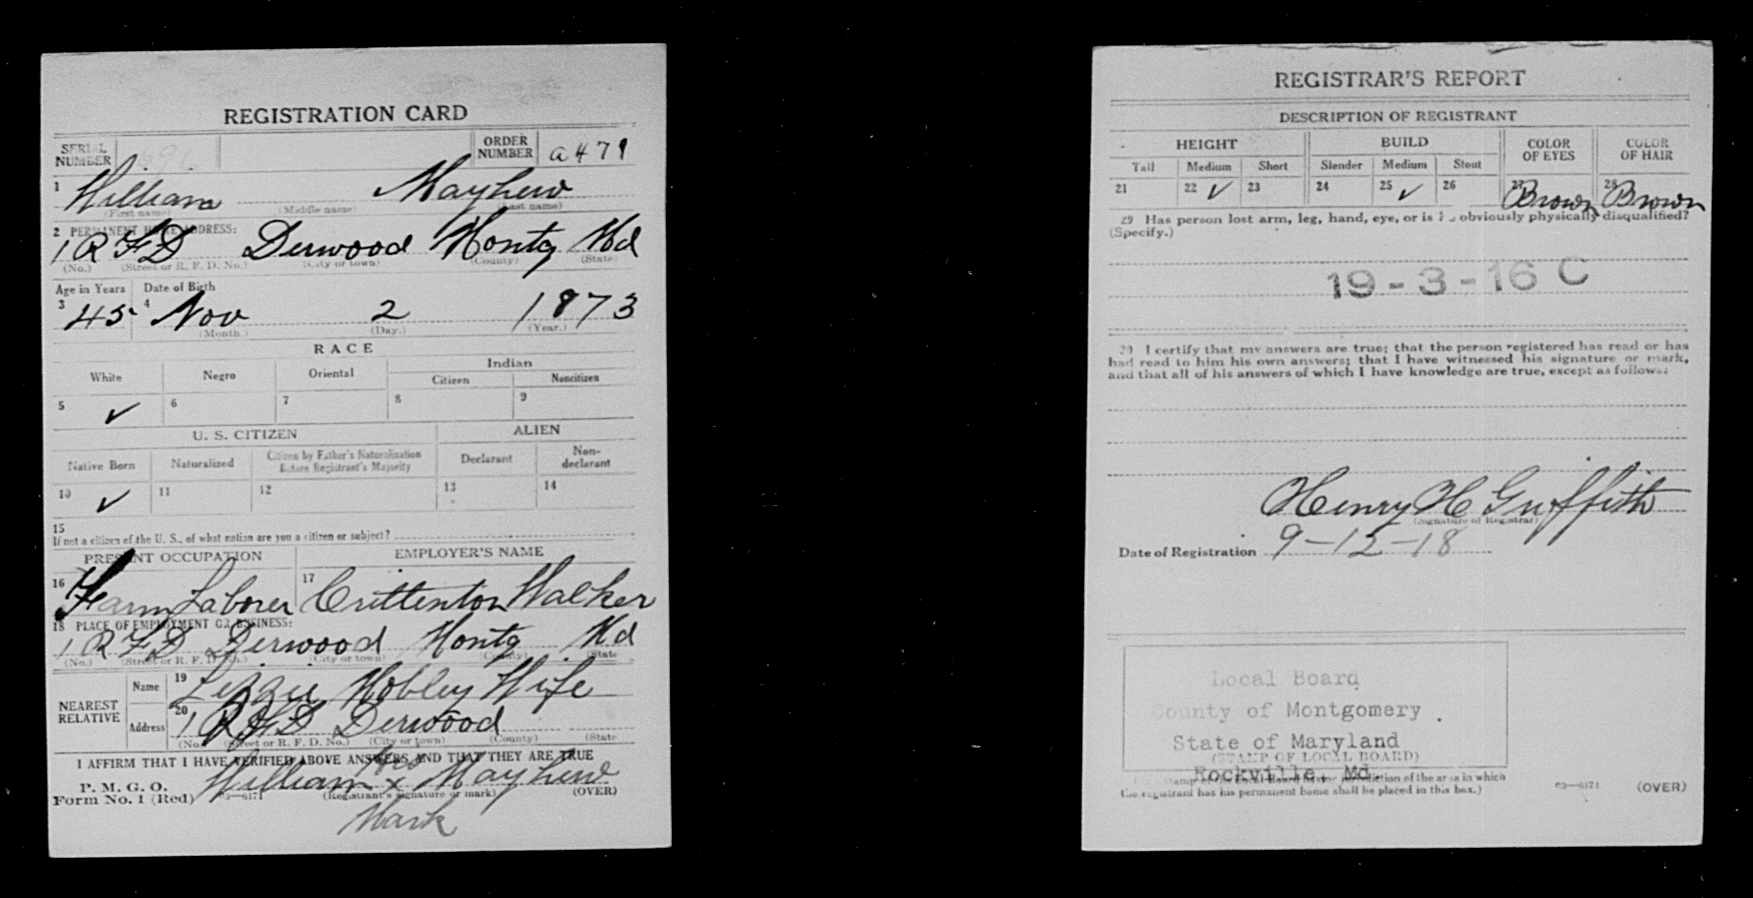 REGISTRATION CARD
SERIAL NUMBER 696 ORDER NUMBER a479
1 William Mayhew
(First name) (Middle name) (Last name)
2 PERMANENT HOME ADDRESS:
1 R F D Derwood Montg Md
(No.) (Street or R. F. D. No.) (City or town) (County) (State)
Age in Years Date of Birth
3 45 4 Nov 2 1873
(Month.) (Day.) (Year.)
RACE
White Negro Oriental Indian
Citizen Noncitizen
5 ✓ 6 7 8 9
U. S. CITIZEN ALIEN
Native Born Naturalized Citizen by Father's Naturalization Before Registrant's Majority Declarant Non-declarant
10 ✓ 11 12 13 14
15
If not a citizen of the U. S., of what nation are you a citizen or subject?
PRESENT OCCUPATION EMPLOYER'S NAME
16 Farm Laborer 17 Crittenton Walker
18 PLACE OF EMPLOYMENT OR BUSINESS:
1 R F D Derwood Montg Md
(No.) (Street or R. F. D. No.) (City or town) (County) (State
NEAREST RELATIVE Name 19 Lizzie Mobley Wife
Address 20 1 R F D Derwood
(No.) (Street or R. F. D. No.) (City or town) (County) (State
I AFFIRM THAT I HAVE VERIFIED ABOVE ANSWERS AND THAT THEY ARE TRUE
P. M. G. O.
Form No. 1 (Red) 03—6171 William his x Mayhew
(Registrant's signature or mark) (OVER)
Mark
REGISTRAR'S REPORT
DESCRIPTION OF REGISTRANT
HEIGHT BUILD COLOR OF EYES COLOR OF HAIR
Tall Medium Short Slender Medium Stout
21 22 ✓ 23 24 25 ✓ 26 27 Brown 28 Brown
29 Has person lost arm, leg, hand, eye, or is he obviously physically disqualified?
(Specify.)
19-3-16 C
30 I certify that my answers are true; that the person registered has read or has
had read to him his own answers; that I have witnessed his signature or mark,
and that all of his answers of which I have knowledge are true, except as follows:
Henry H Griffith
(Signature of Registrar)
Date of Registration 9-12-18
Local Board
County of Montgomery
State of Maryland
(STAMP OF LOCAL BOARD)
Rockville, Md.
(The stamp of the Local Board having jurisdiction of the area in which
the registrant has his permanent home shall be placed in this box.)
03—6171 (OVER)